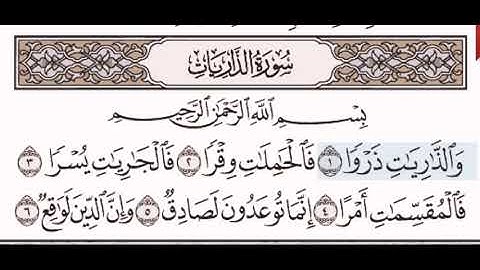 سُورَةُ الذَّارِيَاتِ
بِسْمِ اللَّهِ الرَّحْمَٰنِ الرَّحِيمِ
وَالذَّارِيَاتِ ذَرْوًا ١ فَالْحَامِلَاتِ وِقْرًا ٢ فَالْجَارِيَاتِ يُسْرًا ٣
فَالْمُقَسِّمَاتِ أَمْرًا ٤ إِنَّمَا تُوعَدُونَ لَصَادِقٌ ٥ وَإِنَّ الدِّينَ لَوَاقِعٌ ٦